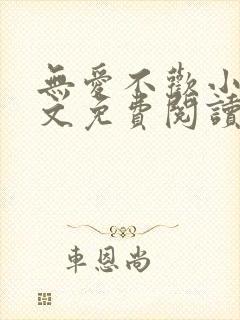 無愛不歡小
文免費閱讀
車恩尚